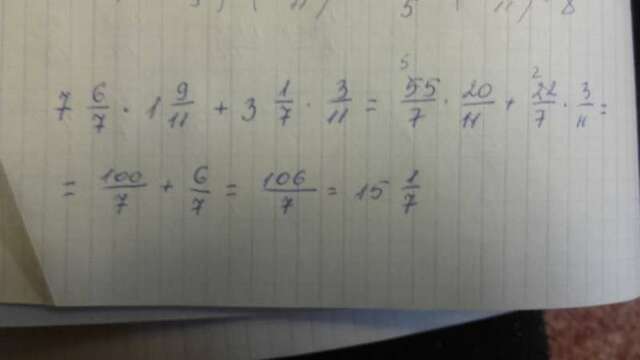 7 6/7 · 1 9/11 + 3 1/7 · 3/11 = 55/7 · 20/11 + 22/7 · 3/11 =
= 100/7 + 6/7 = 106/7 = 15 1/7